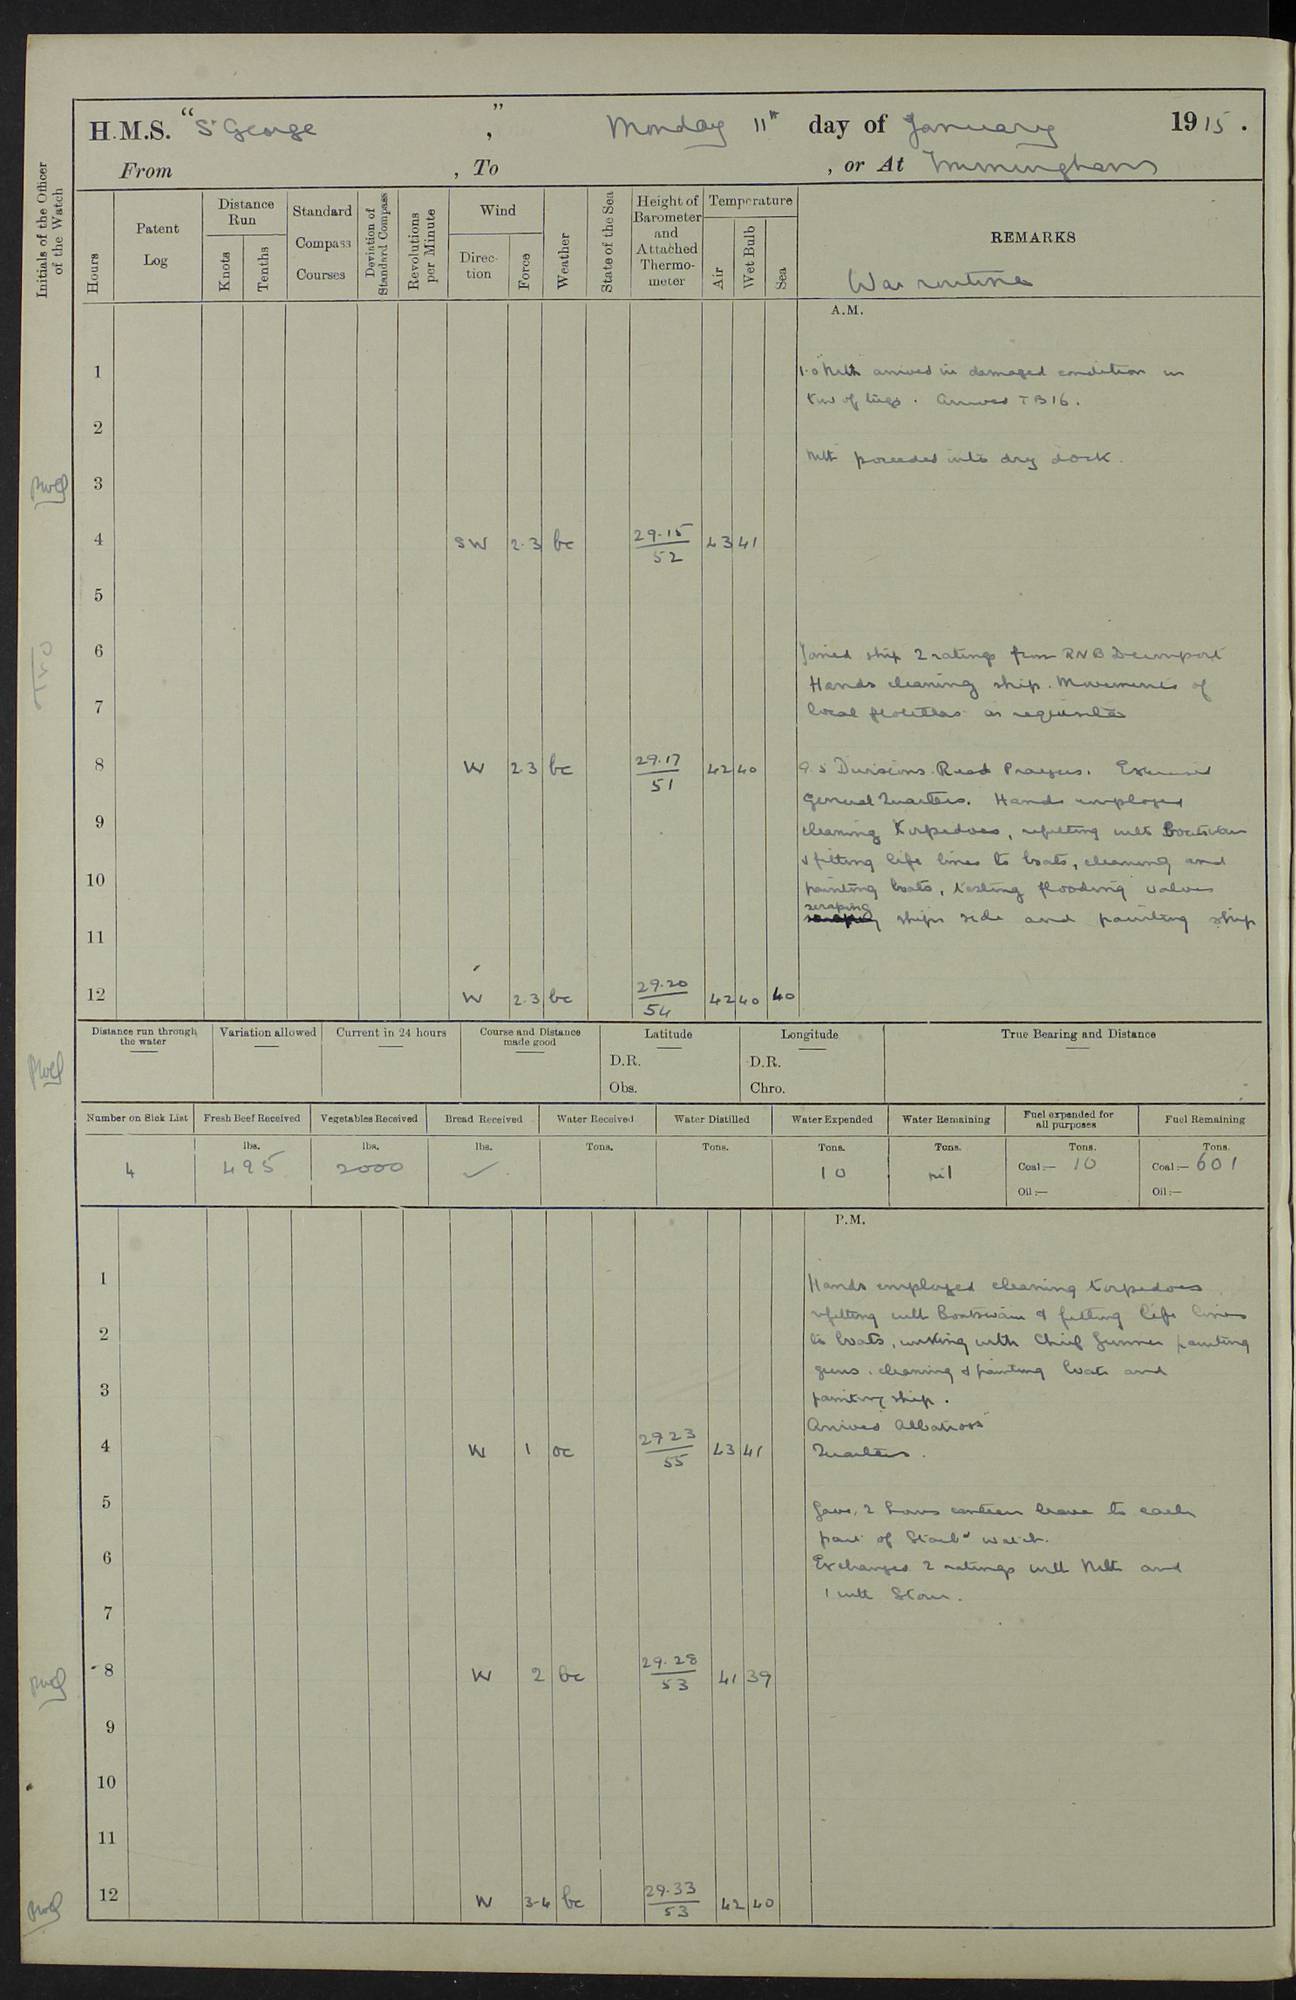 H.M.S. "St George", Monday 11th day of January 1915.
From , To , or At Immingham
Initials of the Officer of the Watch
Hours
Patent Log
Distance Run
Knots
Tenths
Standard Compass Courses
Deviation of Standard Compass
Revolutions per Minute
Wind
Direction
Force
Weather
State of the Sea
Height of Barometer and Attached Thermometer
Temperature
Air
Wet Bulb
Sea
REMARKS
War routine
A.M.
1 1.0 Nith arrived in damaged condition in
tow of tugs. Arrived TB 16.
2
Nith proceeded into dry dock.
3
4 SW 2.3 bc 29.15 52 43 41
5
6 Joined ship 2 ratings from RNB Devonport
Hands cleaning ship. Movements of
7 local flotillas as requisite
8 W 2.3 bc 29.17 51 42 40 9.5 Divisions. Read Prayers. Exercised
General Quarters. Hands employed
9 cleaning torpedoes, refitting with Boatswain
& fitting life lines to boats, cleaning and
10 painting boats, testing flooding valves
scraping ships side and painting ship
11
12 W 2.3 bc 29.20 54 42 40 40
Distance run through the water
Variation allowed
Current in 24 hours
Course and Distance made good
Latitude
D.R.
Obs.
Longitude
D.R.
Chro.
True Bearing and Distance
Number on Sick List
Fresh Beef Received
Vegetables Received
Bread Received
Water Received
Water Distilled
Water Expended
Water Remaining
Fuel expended for all purposes
Fuel Remaining
lbs. lbs. lbs. Tons. Tons. Tons. Tons. Tons. Tons.
4 495 2000 ✓ 10 nil Coal:— 10 Coal:— 601
Oil:— Oil:—
P.M.
1 Hands employed cleaning torpedoes
refitting with Boatswain & fitting life lines
2 to boats, working with Chief Gunner painting
guns. cleaning & painting boats and
3 painting ship.
Arrived Albatross
4 W 1 oc 29 23 55 43 41 Quarters.
5 Gave 2 hours canteen leave to each
part of Starbd watch.
6 Exchanged 2 ratings with Nith and
1 with Stour.
7
8 W 2 bc 29.28 53 41 39
9
10
11
12 W 3-4 bc 29.33 53 42 40